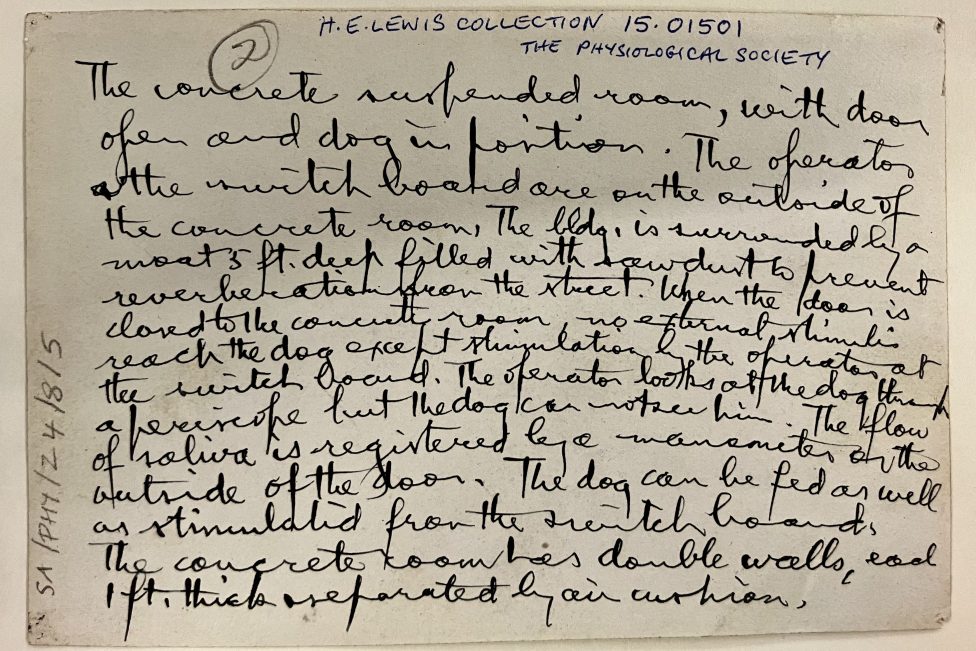 H.E. LEWIS COLLECTION 15.01501
THE PHYSIOLOGICAL SOCIETY
2
The concrete suspended room, with door
open and dog in position. The operator
& the switch board are on the outside of
the concrete room. The bldg. is surrounded by a
moat 5 ft. deep filled with sawdust to prevent
reverberation from the street. When the door is
closed to the concrete room, no external stimulis
reach the dog except stimulation by the operator at
the switch board. The operator looks at the dog through
a periscope but the dog can not see him. The flow
of saliva is registered by a manometer on the
outside of the door. The dog can be fed as well
as stimulated from the switch board.
The concrete room has double walls, each
1 ft. thick separated by air cushion.
SA/PHY/Z4/8/5